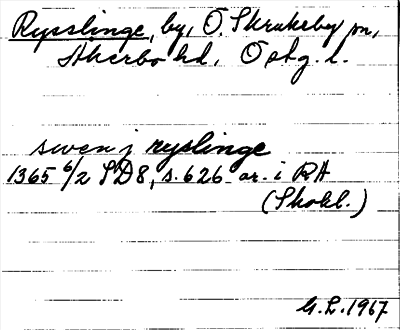 Rysslinge, by, Ö. Skrukeby sn,
Åkerbo hd, Östg. l.
swen j ryslinge
1365 6/2 SD8, s. 626 or. i RA
(Skokl.)
G.L. 1967